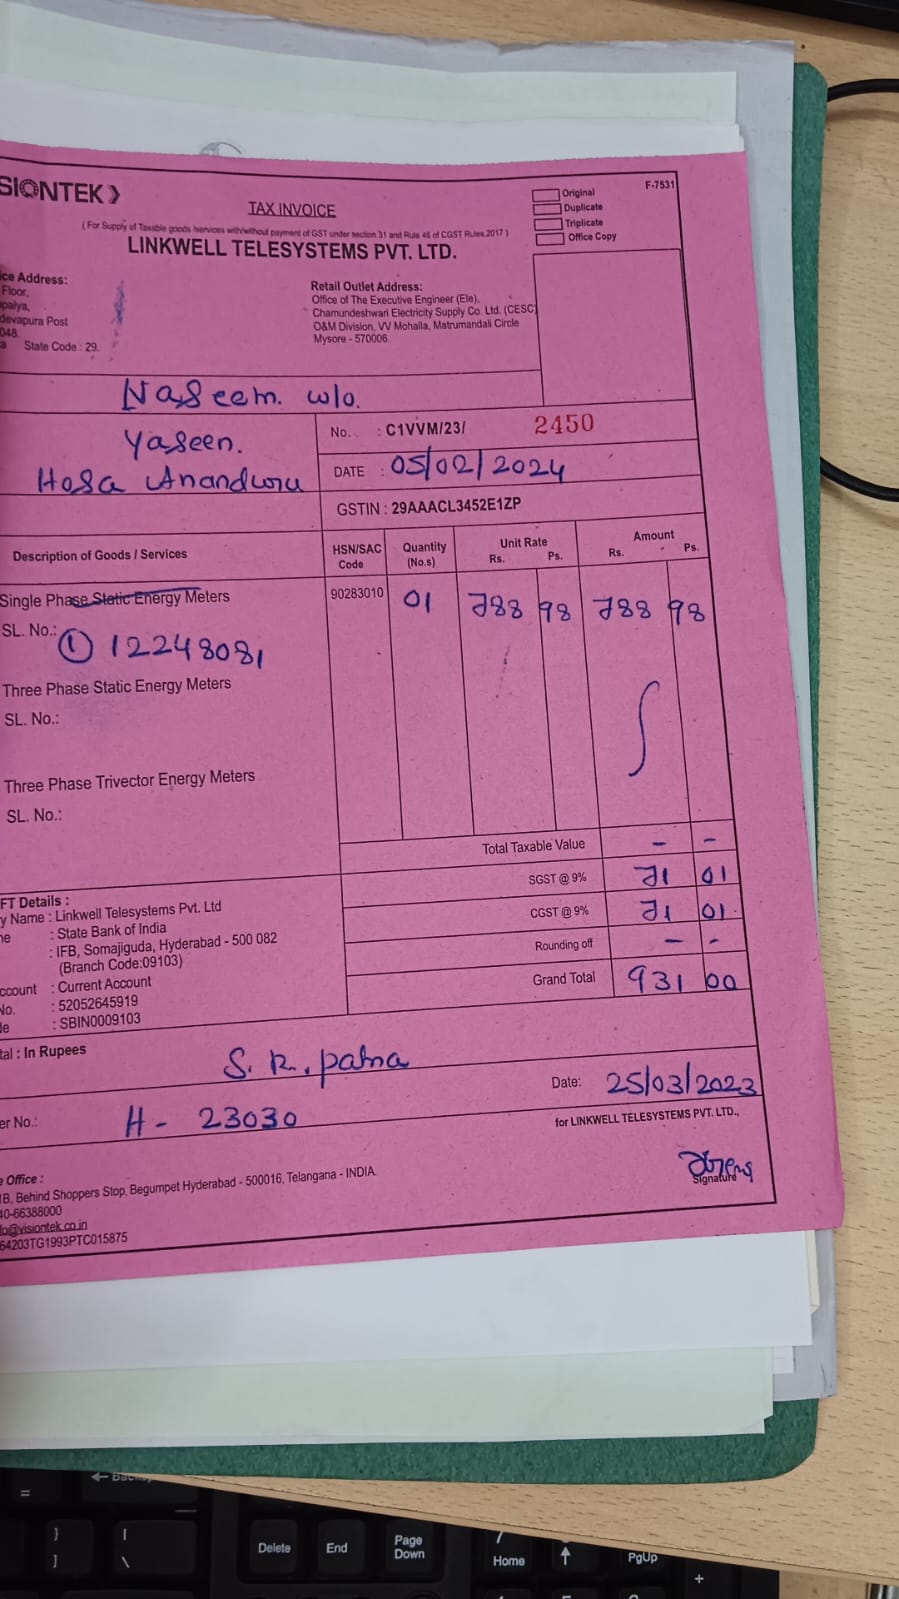 SIONTEK
TAX INVOICE
( For Supply of Taxable goods /services with/without payment of GST under section 31 and Rule 46 of CGST Rules,2017 )
LINKWELL TELESYSTEMS PVT. LTD.
Original
Duplicate
Triplicate
Office Copy
F-7531
ce Address:
Floor,
palya,
devapura Post
048.
a State Code : 29.
Retail Outlet Address:
Office of The Executive Engineer (Ele),
Chamundeshwari Electricity Supply Co. Ltd. (CESC)
O&M Division, VV Mohalla, Matrumandali Circle
Mysore - 570006.
Naseem. w/o.
Yaseen.
Hosa Ananduru
No. : C1VVM/23/ 2450
DATE : 05/02/2024
GSTIN : 29AAACL3452E1ZP
Description of Goods / Services HSN/SAC Code Quantity (No.s) Unit Rate Rs. Ps. Amount Rs. Ps.
Single Phase Static Energy Meters 90283010 01 788 98 788 98
SL. No.: ① 12248081
Three Phase Static Energy Meters
SL. No.:
Three Phase Trivector Energy Meters
SL. No.:
Total Taxable Value - -
SGST @ 9% 71 01
CGST @ 9% 71 01
Rounding off - -
Grand Total 931 00
FT Details :
y Name : Linkwell Telesystems Pvt. Ltd
me : State Bank of India
: IFB, Somajiguda, Hyderabad - 500 082
(Branch Code:09103)
ccount : Current Account
No. : 52052645919
de : SBIN0009103
tal : In Rupees
S. R. patna
Date: 25/03/2023
er No.: H - 23030
for LINKWELL TELESYSTEMS PVT. LTD.,
Signature
e Office :
1B, Behind Shoppers Stop, Begumpet Hyderabad - 500016, Telangana - INDIA
40-66388000
fo@visiontek.co.in
64203TG1993PTC015875
Delete
End
Page Down
Home
PgUp